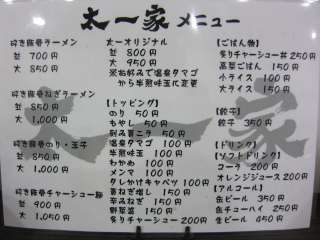 太一家 メニュー
豚骨ラーメン
並 700円
大 850円
豚骨ねぎラーメン
並 850円
大 1,000円
豚骨のり・玉子
並 850円
大 1,000円
豚骨チャーシュー麺
並 900円
大 1,050円
太一オリジナル
並 800円
大 950円
※お好みで温泉タマゴ
から半熟味玉に変更
【トッピング】
のり 50円
もやし 50円
刻み青ニラ 50円
温泉タマゴ 100円
半熟味玉 100円
わかめ 100円
メンマ 100円
タレかけキャベツ 100円
青ねぎ増し 150円
辛みねぎ 150円
野菜盛 150円
炙りチャーシュー 200円
【ごはん物】
炙りチャーシュー丼 250円
高菜ごはん 150円
小ライス 100円
大ライス 150円
【餃子】
餃子 350円
【ドリンク】
【ソフトドリンク】
コーラ 200円
オレンジジュース 200円
【アルコール】
缶ビール 350円
缶チューハイ 250円
生ビール 450円
太一家